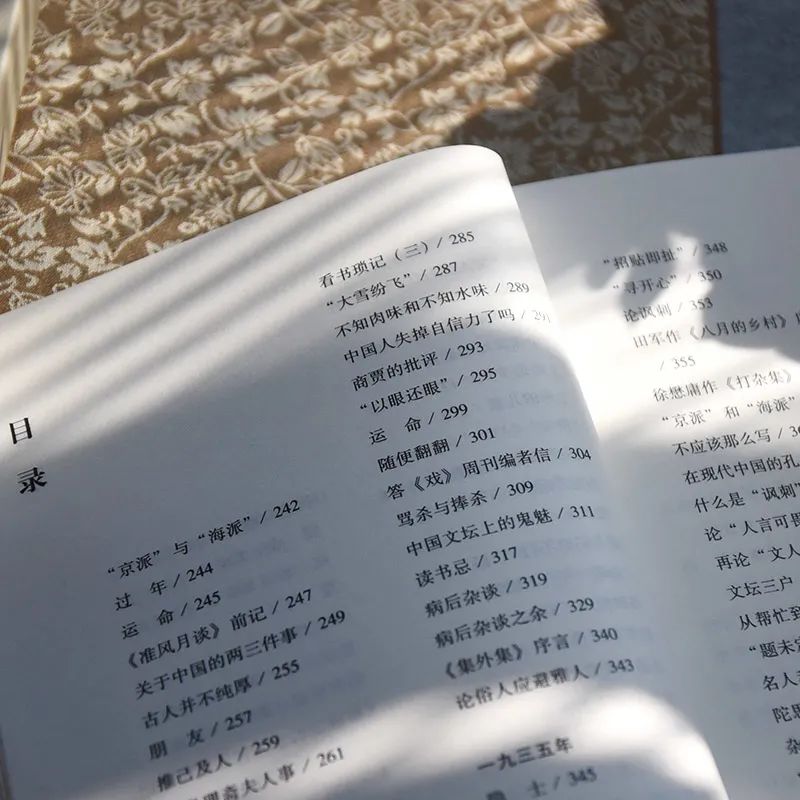 目
录
“京派”与“海派” / 242
过 年 / 244
运 命 / 245
《准风月谈》前记 / 247
关于中国的两三件事 / 249
古人并不纯厚 / 255
朋 友 / 257
推己及人 / 259
斋夫人事 / 261
看书琐记（三） / 285
“大雪纷飞” / 287
不知肉味和不知水味 / 289
中国人失掉自信力了吗 / 291
商贾的批评 / 293
“以眼还眼” / 295
运 命 / 299
随便翻翻 / 301
答《戏》周刊编者信 / 304
骂杀与捧杀 / 309
中国文坛上的鬼魅 / 311
读书忌 / 317
病后杂谈 / 319
病后杂谈之余 / 329
《集外集》序言 / 340
论俗人应避雅人 / 343
一九三五年
士 / 345
“招贴即扯” / 348
“寻开心” / 350
论讽刺 / 353
田军作《八月的乡村》
/ 355
徐懋庸作《打杂集》
“京派”和“海派”
不应该那么写 /
在现代中国的孔
什么是“讽刺”
论“人言可畏
再论“文人
文坛三户
从帮忙到
“题未定
名人
陀思
杂